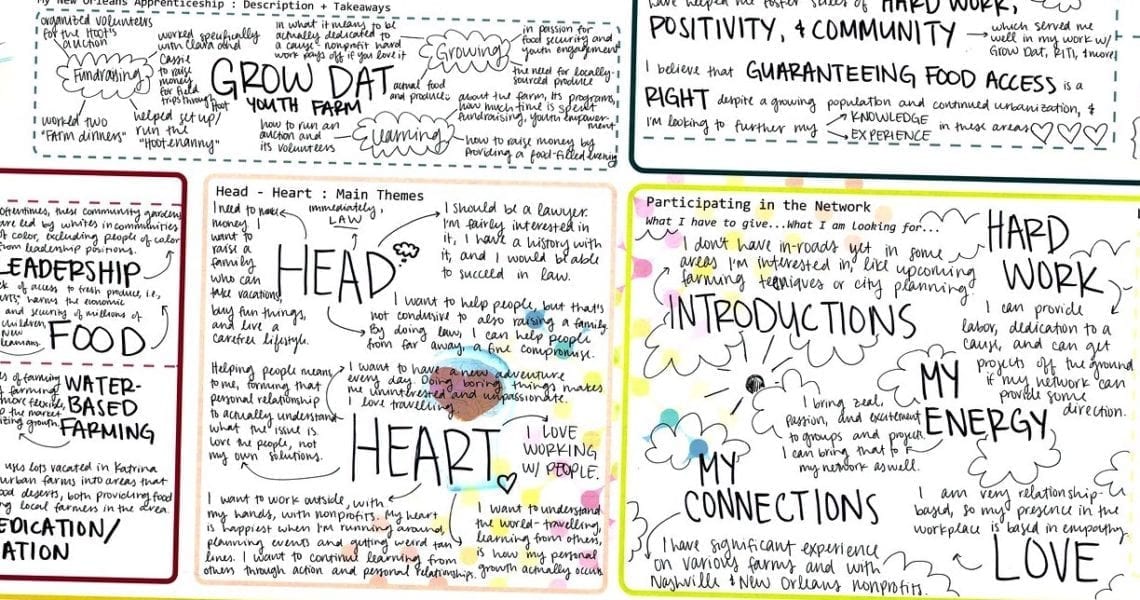 My New Orleans Apprenticeship : Description + Takeaways
organized volunteers
for the Hoot's
auction
worked specifically
with Clara and
Cassie
to raise
money
for field
trips through
Hoot
Fundraising
worked two
"Farm dinners"
helped set up/
run the
"Hootenanny"
GROW DAT
YOUTH FARM
in what it means to be
actually dedicated to
a cause - nonprofit hard
work pays off if you love it
Growing
in passion for
food security and
youth engagement
the need for locally-
sourced produce
actual food
and produce
about the farm, its programs,
how much time is spent
fundraising, youth empower-
ment
Learning
how to run an
auction and
its volunteers
how to raise money by
providing a food-filled evening
have helped me foster
HARD WORK,
POSITIVITY, & COMMUNITY
which served me
well in my work w/
Grow Dat, RITI, & more!
I believe that GUARANTEEING FOOD ACCESS is a
RIGHT despite a growing population and continued urbanization, &
I'm looking to further my KNOWLEDGE
EXPERIENCE in these areas
oftentimes, these community gardens
are led by whites in communities
of color, excluding people of color
from leadership positions.
LEADERSHIP
of access to fresh produce, i.e.,
harms the economic
and security of millions of
children,
New
FOOD
of farming
farming
more flexible,
to the market
growth.
WATER-
BASED
FARMING
uses lots vacated in Katrina
urban farms into areas that
food deserts, both providing food
local farmers in the area.
EDICATION/
ATION
Head - Heart : Main Themes
I need to make
money. I
want to
raise a
family
who can
take vacations,
buy fun things,
and live a
carefree lifestyle.
immediately,
LAW
HEAD
I should be a lawyer.
I'm fairly interested in
it, I have a history with
it, and I would be able
to succeed in law.
I want to help people, but that's
not conducive to also raising a family.
By doing law, I can help people
from far away, a fine compromise.
Helping people means
to me, forming that
personal relationship
to actually understand
what the issue is.
love the people, not
my own solutions.
I want to have a new adventure
every day. Doing boring things makes
me uninterested and unpassionate.
I love travelling.
HEART
I LOVE
WORKING
W/ PEOPLE.
I want to work outside, with
my hands, with nonprofits. My heart
is happiest when I'm running around,
planning events and getting weird tan
lines. I want to continue learning from
others through action and personal relationships.
I want to understand
the world - travelling,
learning from others,
is how my personal
growth actually occurs
Participating in the Network
What I have to give...What I am looking for...
I don't have in-roads yet in some
areas I'm interested in, like upcoming
farming techniques or city planning.
INTRODUCTIONS
HARD
WORK
I can provide
labor, dedication to a
cause, and can get
projects off the ground
if my network can
provide some
direction.
MY
ENERGY
I bring zeal,
passion, and excitement
to groups and projects.
I can bring that to
my network as well.
MY
CONNECTIONS
I have significant experience
on various farms and with
Nashville & New Orleans nonprofits.
I am very relationship-
based, so my presence in the
workplace is based in empathy.
LOVE